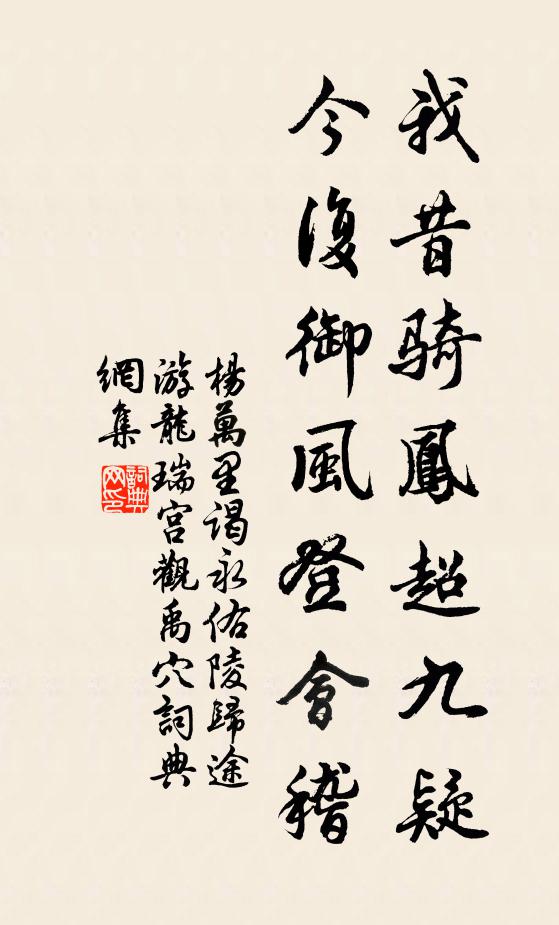 我昔騎鳳超九疑
今復御風登會稽
楊萬里謁永佑陵歸途
游龍瑞宮觀禹穴詞典
網集
詞典
网印